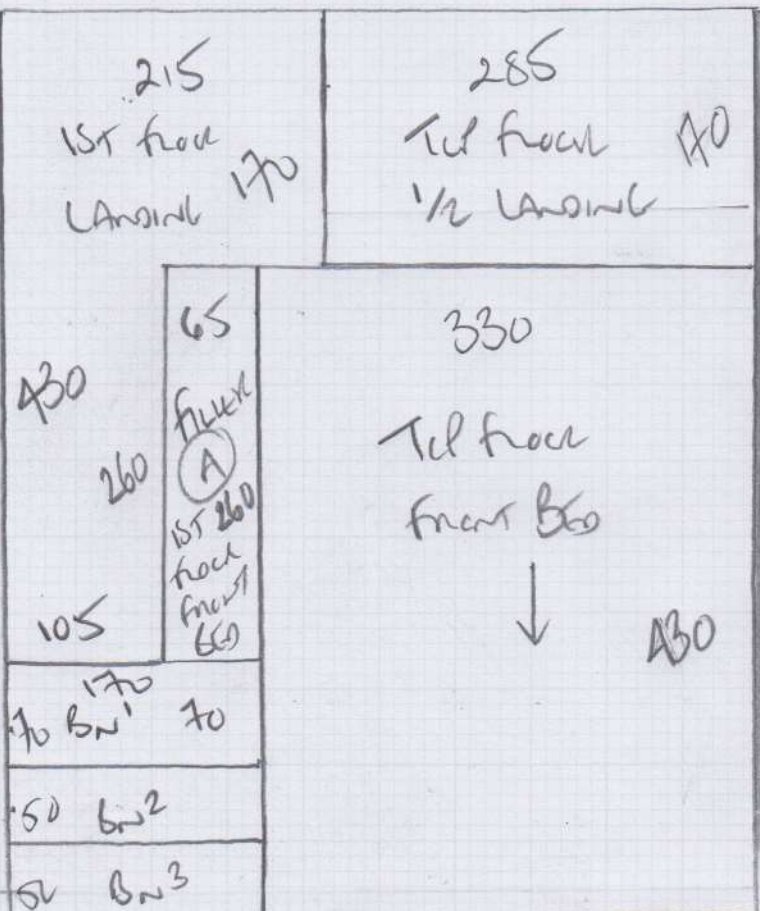 215
1ST FLOOR
LANDING
170
285
TOP FLOOR
1/2 LANDING
170
430
260
105
65
FILLER
A
1ST 260
FLOOR
FRONT
BED
330
TOP FLOOR
FRONT BED
430
170
70 BN1 70
50 BN2
50 BN3